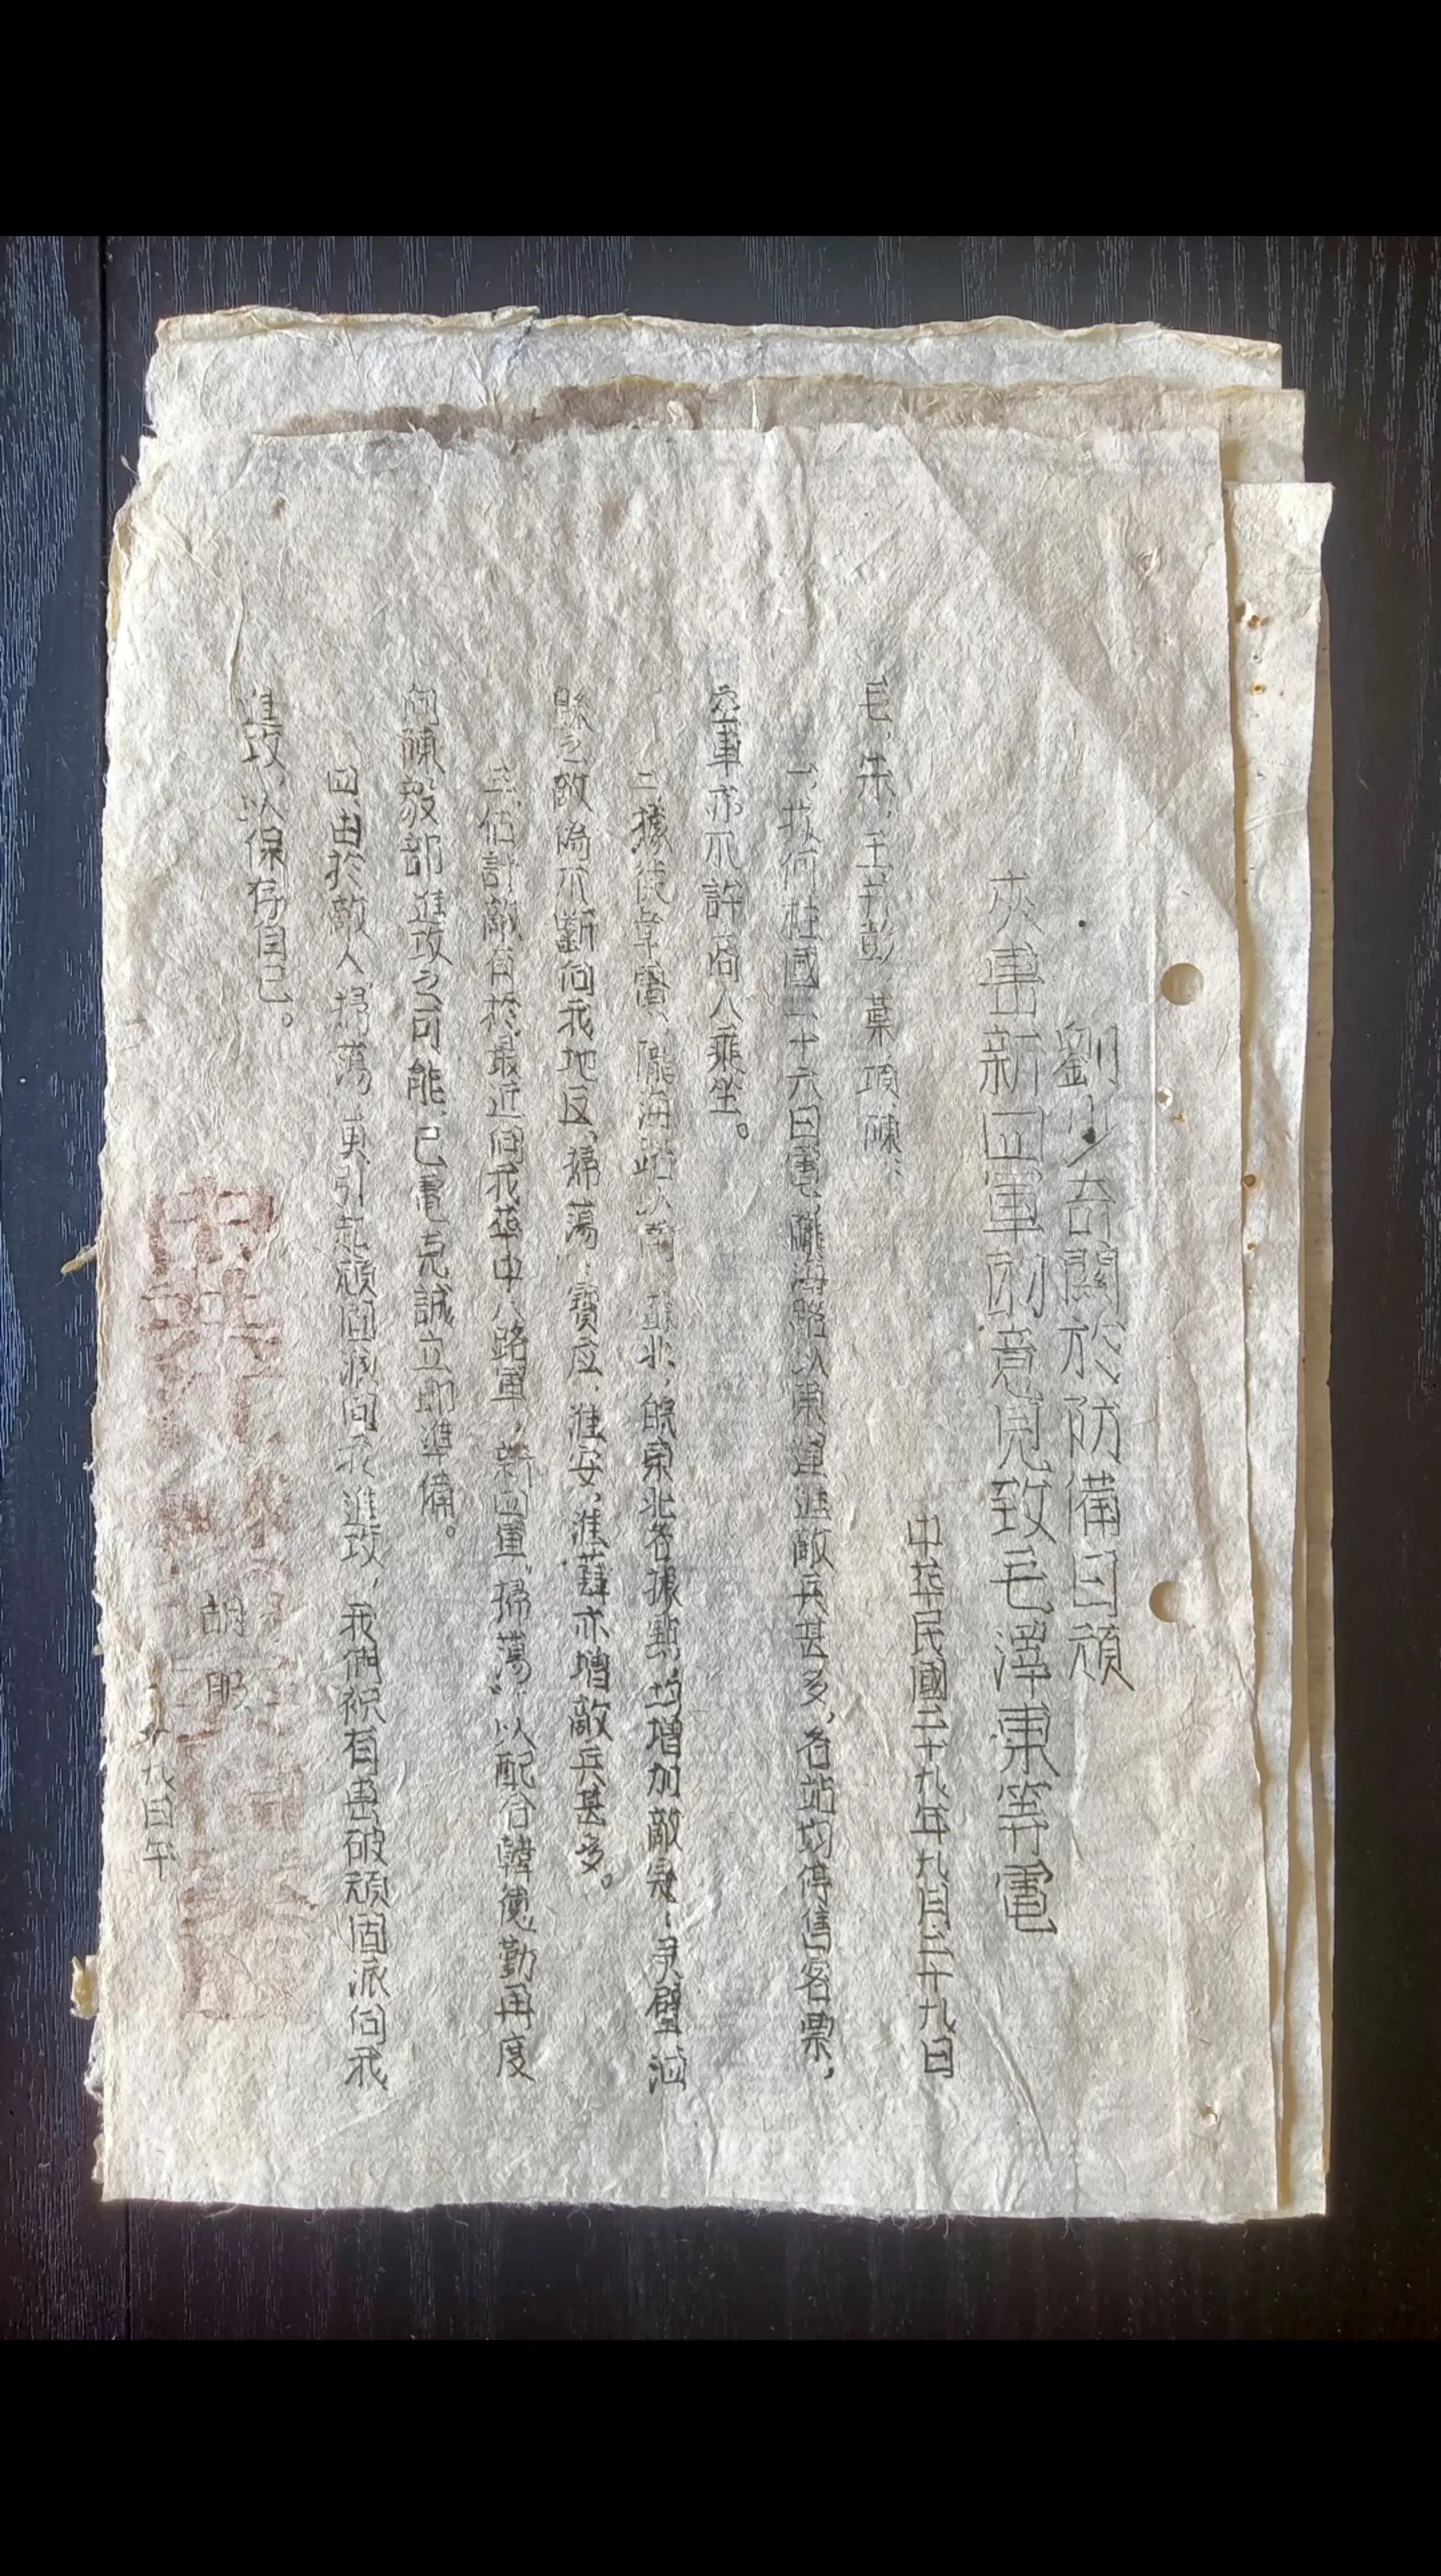 劉少奇關於防備日頑
夾擊新四軍的意見致毛澤東等電
中華民國二十九年九月二十九日
毛、朱、王并彭、葉、項、陳：
一、我何柱國二十六日電，隴海路以東運進敵兵甚多，各站均停售客票，
空車亦不許商人乘坐。
二、據 電、隴海路以南、蘇北、皖東北各據點，均增加敵
縣之敵偽不斷向我地区掃蕩；寶应、淮安、淮 亦增敵兵甚多。
三、估計敵有於最近向我華中八路軍，新四軍“掃蕩”以配合韓德勤再度
向陳毅部進攻之可能，已電克誠立即準備。
四、由於敵人掃蕩 引起頑固派向我進攻，我們祇有擊破頑固派向我
進攻，以保存自己。
胡服
九日午